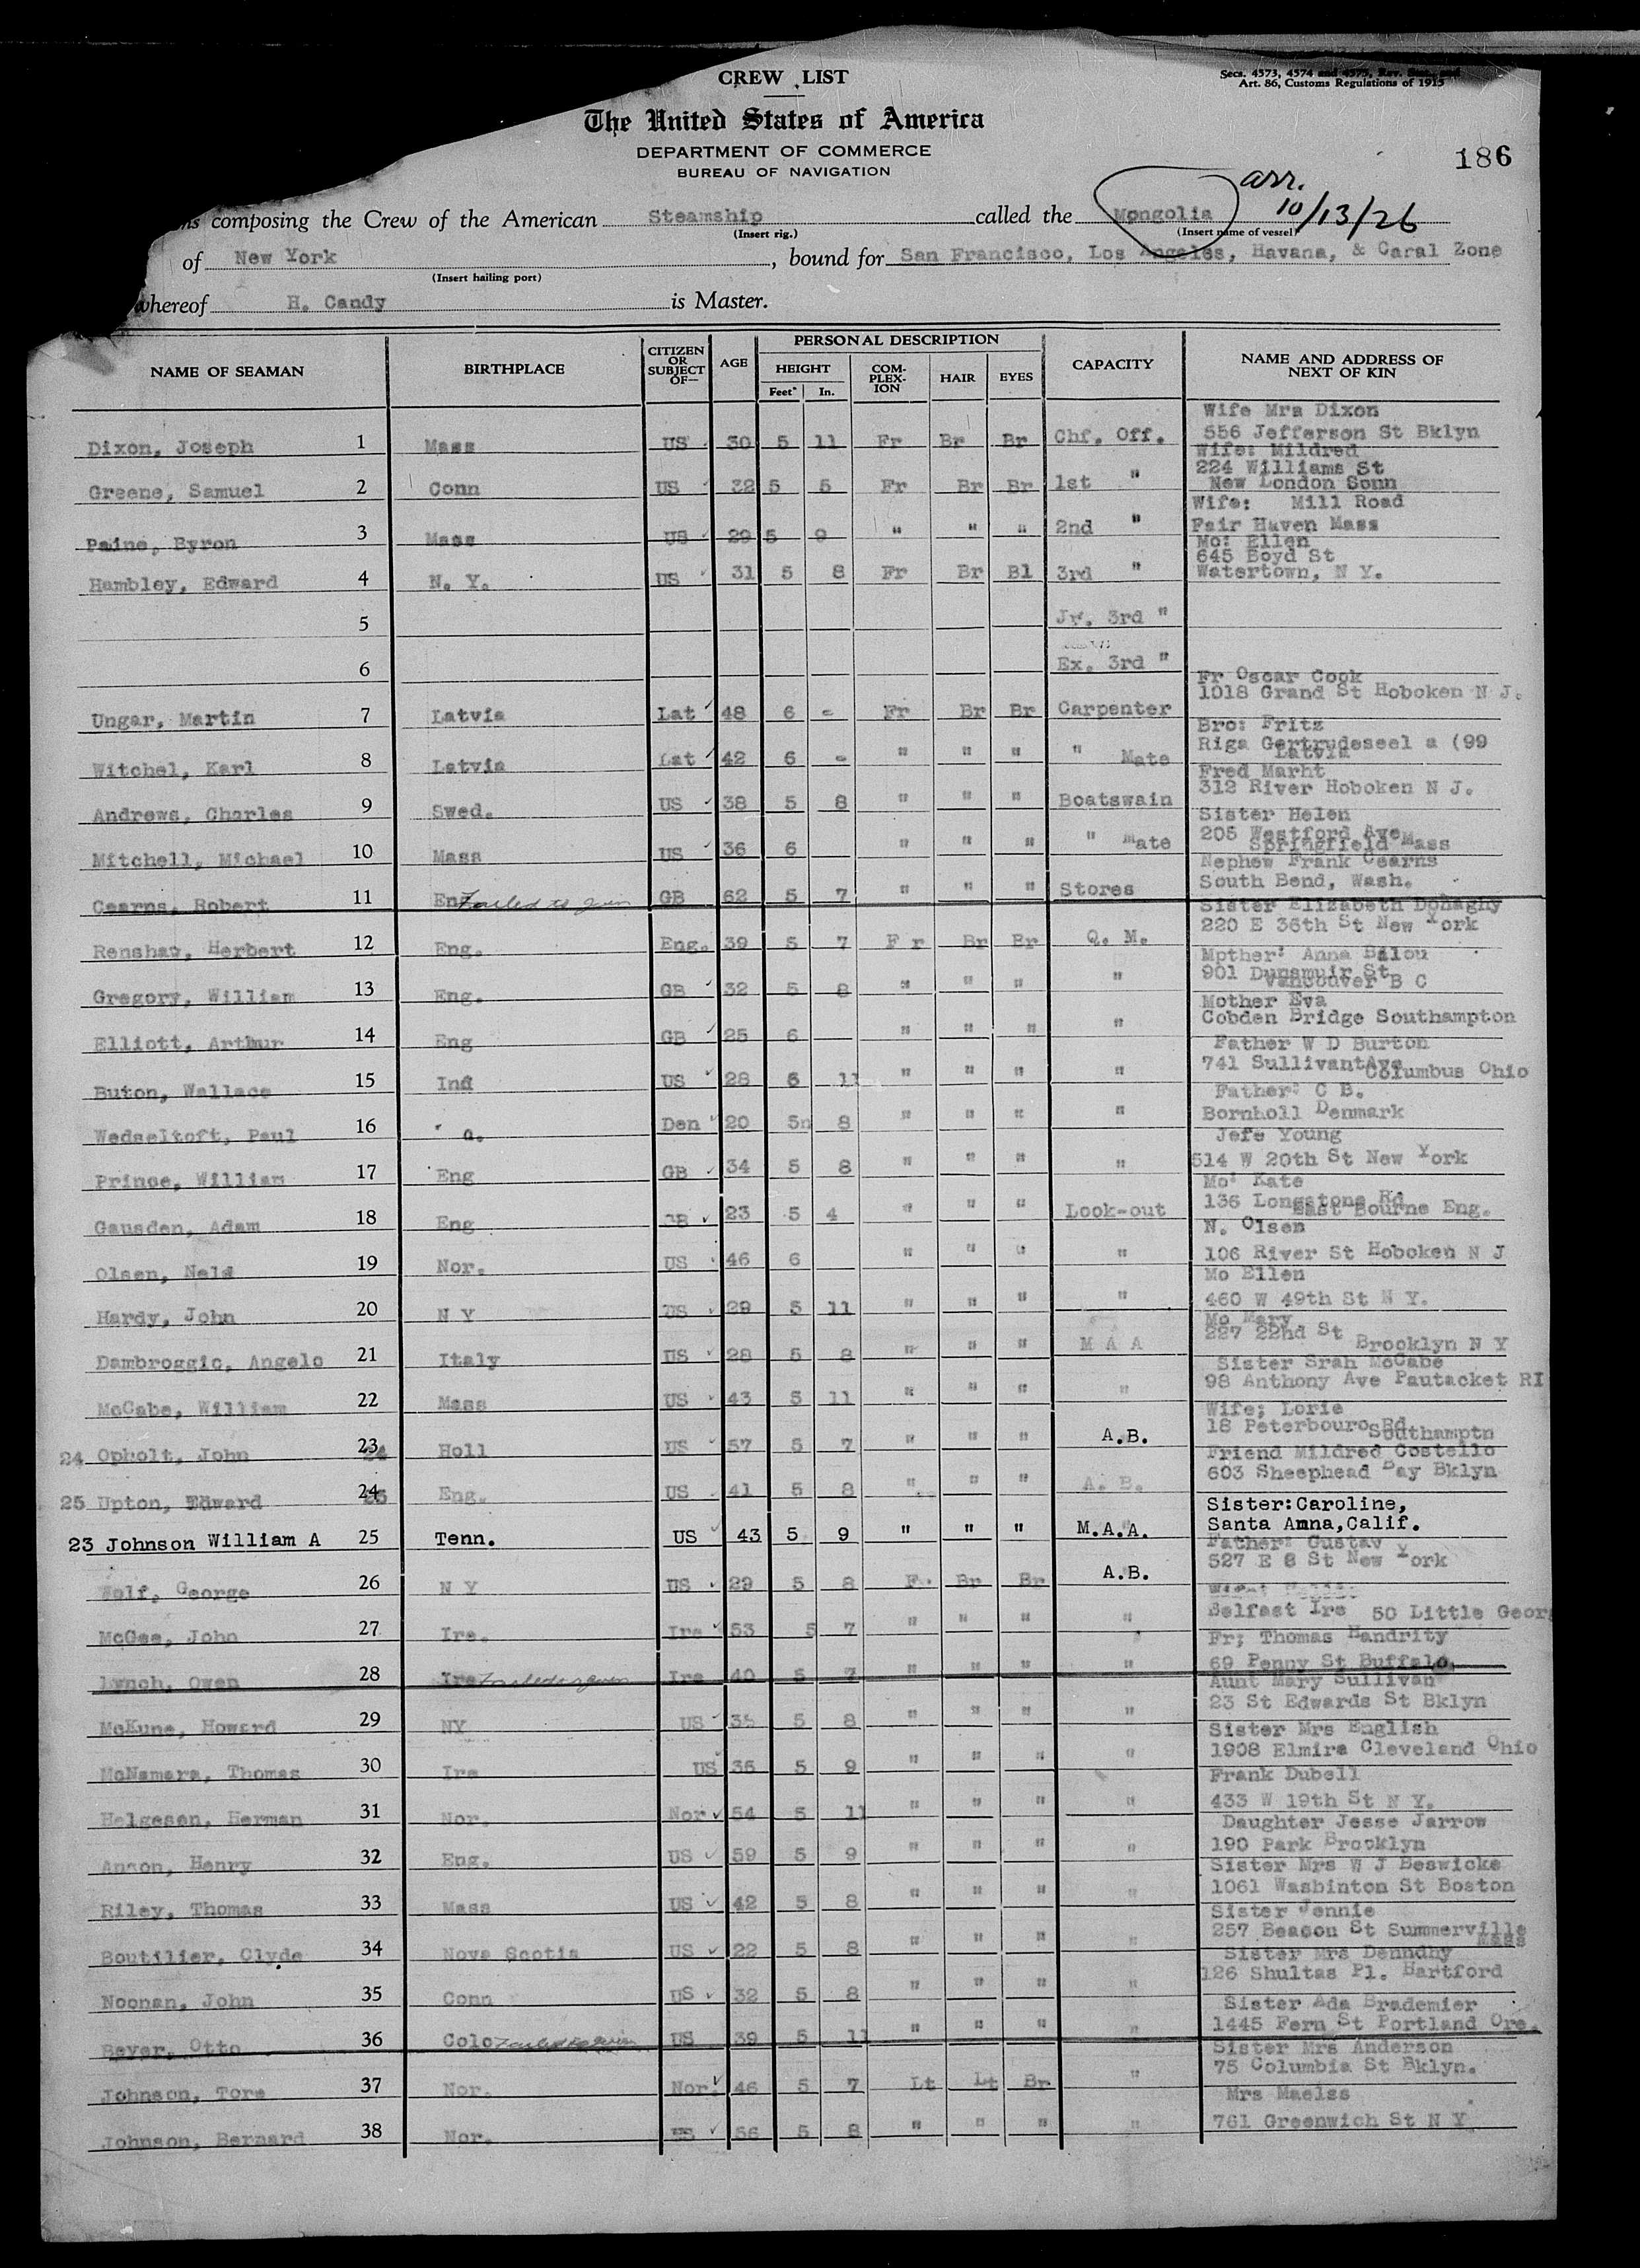 CREW LIST
Secs. 4573, 4574 and 4575, Rev.
Art. 86, Customs Regulations of 1915
The United States of America
DEPARTMENT OF COMMERCE
BUREAU OF NAVIGATION
186
arr.
10/13/26
composing the Crew of the American Steamship called the Mongolia
(Insert rig.) (Insert name of vessel)
of New York, bound for San Francisco, Los Angeles, Havana, & Caral Zone
(Insert hailing port)
whereof H. Candy is Master.
NAME OF SEAMAN BIRTHPLACE CITIZEN OR SUBJECT OF— AGE PERSONAL DESCRIPTION HEIGHT Feet In. COMPLEXION HAIR EYES CAPACITY NAME AND ADDRESS OF NEXT OF KIN
Wife Mrs Dixon
Dixon, Joseph 1 Mass US 30 5 11 Fr Br Br Chf. Off. 556 Jefferson St Bklyn
Wife: Mildred
224 Williams St
Greene, Samuel 2 Conn US 32 5 5 Fr Br Br 1st " New London Sonn
Wife: Mill Road
Paine, Byron 3 Mass US 29 5 9 " " " 2nd " Fair Haven Mass
Mo: Ellen
645 Boyd St
Hambley, Edward 4 N. Y. US 31 5 8 Fr Br Bl 3rd " Watertown, N Y.
5 Jr. 3rd "
6 Ex. 3rd "
Fr Oscar Cook
Ungar, Martin 7 Latvia Lat 48 6 - Fr Br Br Carpenter 1018 Grand St Hoboken N J.
Bro: Fritz
Witchel, Karl 8 Latvia Lat 42 6 - " " " " Mate Riga Gertrudeseel a (99
Latvia
Fred Marht
Andrews, Charles 9 Swed. US 38 5 8 " " " Boatswain 312 River Hoboken N J.
Sister Helen
Mitchell, Michael 10 Mass US 36 6 " " " " Mate 205 Westford Ave
Springfield Mass
Nephew Frank Cearns
Cearns, Robert 11 Eng Failed to join GB 62 5 7 " " " Stores South Bend, Wash.
Sister Elizabeth Donaghy
Renshaw, Herbert 12 Eng. Eng. 39 5 7 F r Br Br Q. M. 220 E 36th St New York
Mpther: Anna Balou
Gregory, William 13 Eng. GB 32 5 8 " " " " 901 Dunsmuir St
Vancouver B C
Mother Eva
Elliott, Arthur 14 Eng GB 25 6 " " " " Cobden Bridge Southampton
Father W D Burton
Buton, Wallace 15 Ind US 28 6 11 " " " " 741 SullivantAve
Columbus Ohio
Father: C B.
Wedseltoft, Paul 16 Den 20 5n 8 " " " " Bornholl Denmark
Jefe Young
Prince, William 17 Eng GB 34 5 8 " " " " 514 W 20th St New York
Mo: Kate
Gausden, Adam 18 Eng GB 23 5 4 " " " Look-out 136 Longstone Rd
East Bourne Eng.
N. Olsen
Olsen, Nels 19 Nor. US 46 6 " " " " 106 River St Hoboken N J
Mo Ellen
Hardy, John 20 N Y US 29 5 11 " " " " 460 W 49th St N Y.
Mo Mary
Dambroggic, Angelo 21 Italy US 28 5 8 " " " M A A 227 22nd St
Brooklyn N Y
Sister Srah McCabe
McCabe, William 22 Mass US 43 5 11 " " " " 98 Anthony Ave Pautacket RI
Wife; Lorie
24 Opholt, John 23 24 Holl US 57 5 7 " " " A.B. 18 Peterbouro Rd
Southamptn
Friend Mildred Costello
25 Upton, Edward 24 25 Eng. US 41 5 8 " " " A. B. 603 Sheephead Bay Bklyn
Sister:Caroline,
23 Johnson William A 25 Tenn. US 43 5 9 " " " M.A.A. Santa Amna,Calif.
Father: Gustav
Wolf, George 26 N Y US 29 5 8 F. Br Br A.B. 527 E 8 St New York
McGee, John 27 Ire. Ire 53 5 7 " " " " Belfast Ire 50 Little Geor
Fr; Thomas Handrity
Lynch, Owen 28 Ire Failed to join Ire 40 5 7 " " " " 69 Penny St Buffalo
Aunt Mary Sullivan
McKune, Howard 29 NY US 38 5 8 " " " " 23 St Edwards St Bklyn
Sister Mrs English
McNamara, Thomas 30 Ire US 36 5 9 " " " " 1908 Elmira Cleveland Ohio
Frank Dubell
Helgesen, Herman 31 Nor. Nor 54 5 11 " " " " 433 W 19th St N Y.
Daughter Jesse Jarrow
Anson, Henry 32 Eng. US 59 5 9 " " " " 190 Park Brooklyn
Sister Mrs W J Beswicke
Riley, Thomas 33 Mass US 42 5 8 " " " " 1061 Wasbinton St Boston
Sister Jennie
Boutilier, Clyde 34 Nova Scotia US 22 5 8 " " " " 257 Beacon St Summerville
Mass
Sister Mrs Denndhy
Noonan, John 35 Conn US 32 5 8 " " " " 126 Shultas Pl. Hartford
Sister Ada Brademier
Beyer, Otto 36 Colo Failed to join US 39 5 11 " " " " 1445 Fern St Portland Ore.
Sister Mrs Anderson
Johnson, Tore 37 Nor. Nor. 46 5 7 Lt Lt Br " 75 Columbia St Bklyn.
Mrs Maelss
Johnson, Bernard 38 Nor. US 56 5 8 " " " " 761 Greenwich St N Y